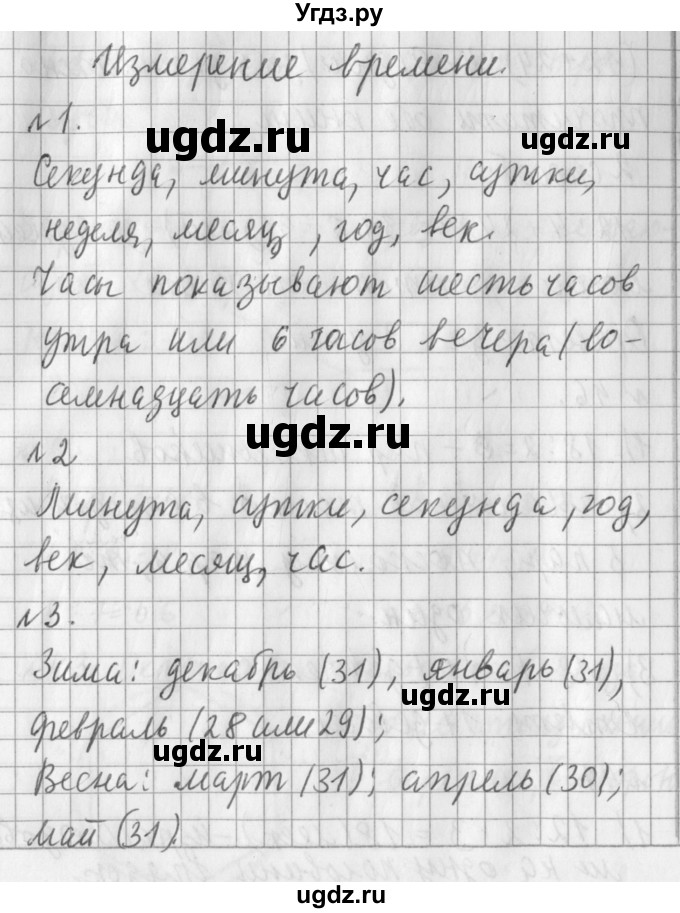 Угдз.ру
Измерение времени.
№1.
ugdz.ru
ugdz.ru
Секунда, минута, час, сутки,
неделя, месяц, год, век.
Часы показывают шесть часов
утра или 6 часов вечера (во-
семнадцать часов).
ugdz.ru
№2
Минута, сутки, секунда, год,
век, месяц, час.
№3.
Зима: декабрь (31), январь (31),
ugdz.ru
февраль (28 или 29);
ugdz.ru
Весна: март (31); апрель (30);
май (31)
ugdz.ru